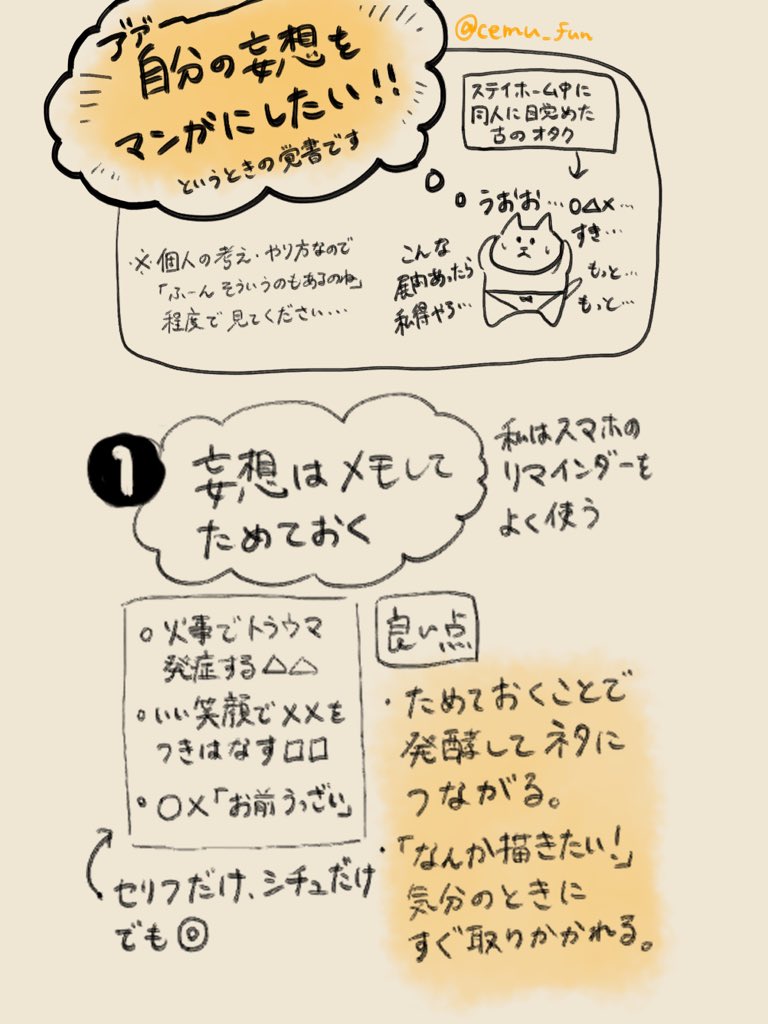 @cemu_fun
アアー
自分の妄想を
マンガにしたい!!
というときの覚書です
ステイホーム中に
同人に目覚めた
古のオタク
うおお…○△×…
すき…
もっと…
もっと…
こんな
展開あったら
私得やろ…
※個人の考え・やり方なので
「ふーん そういうのもあるのね」
程度で見てください…
1
妄想はメモして
ためておく
私はスマホの
リマインダーを
よく使う
○火事でトラウマ
発症する△△
○いい笑顔で××を
つきはなす□□
○○×「お前うっざい」
セリフだけ、シチュだけ
でも◎
良い点
・ためておくことで
発酵してネタに
つながる。
・「なんか描きたい!」
気分のときに
すぐ取りかかれる。